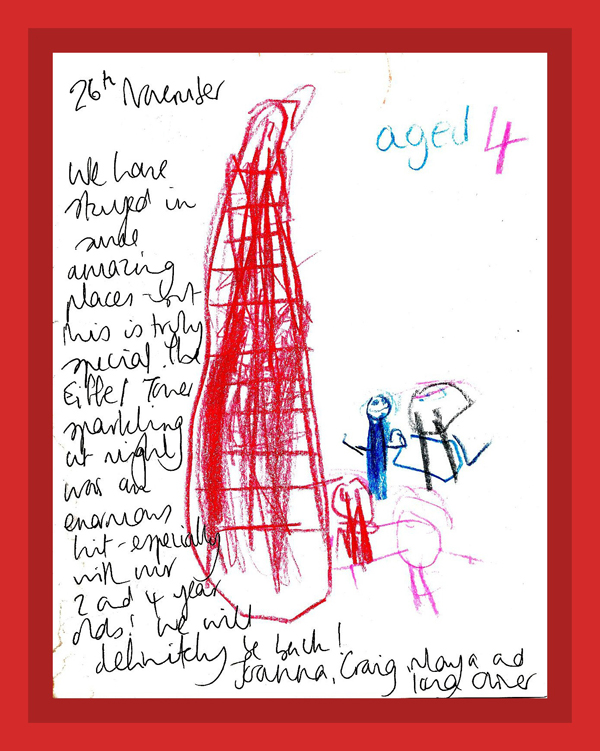 26th November
aged 4
We have
stayed in
some
amazing
places - but
this is truly
special. The
Eiffel Tower
sparkling
at night
was an
enormous
hit - especially
with our
2 and 4 year
olds! We will
definitely be back!
Joanna, Craig, Maya and
Oliver